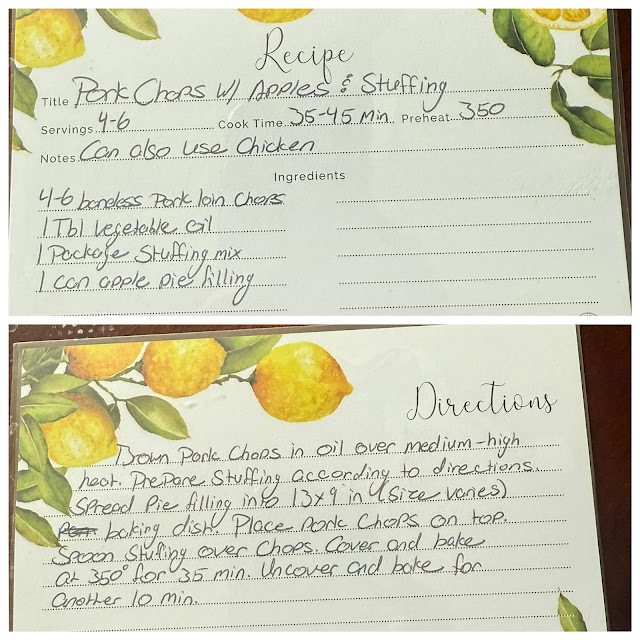 Recipe
Title Pork Chops W/ Apples & Stuffing
Servings 4-6 Cook Time 35-45 Min. Preheat 350
Notes Can also use Chicken
Ingredients
4-6 boneless Pork loin Chops
1 Tbl vegetable oil
1 Package Stuffing mix
1 can apple pie filling
Directions
Brown Pork Chops in oil over medium-high
heat. Prepare Stuffing according to directions.
Spread Pie filling into 13x9 in (size varies)
baking dish. Place Pork Chops on top.
Spoon Stuffing over Chops. Cover and bake
at 350° for 35 min. Uncover and bake for
another 10 min.